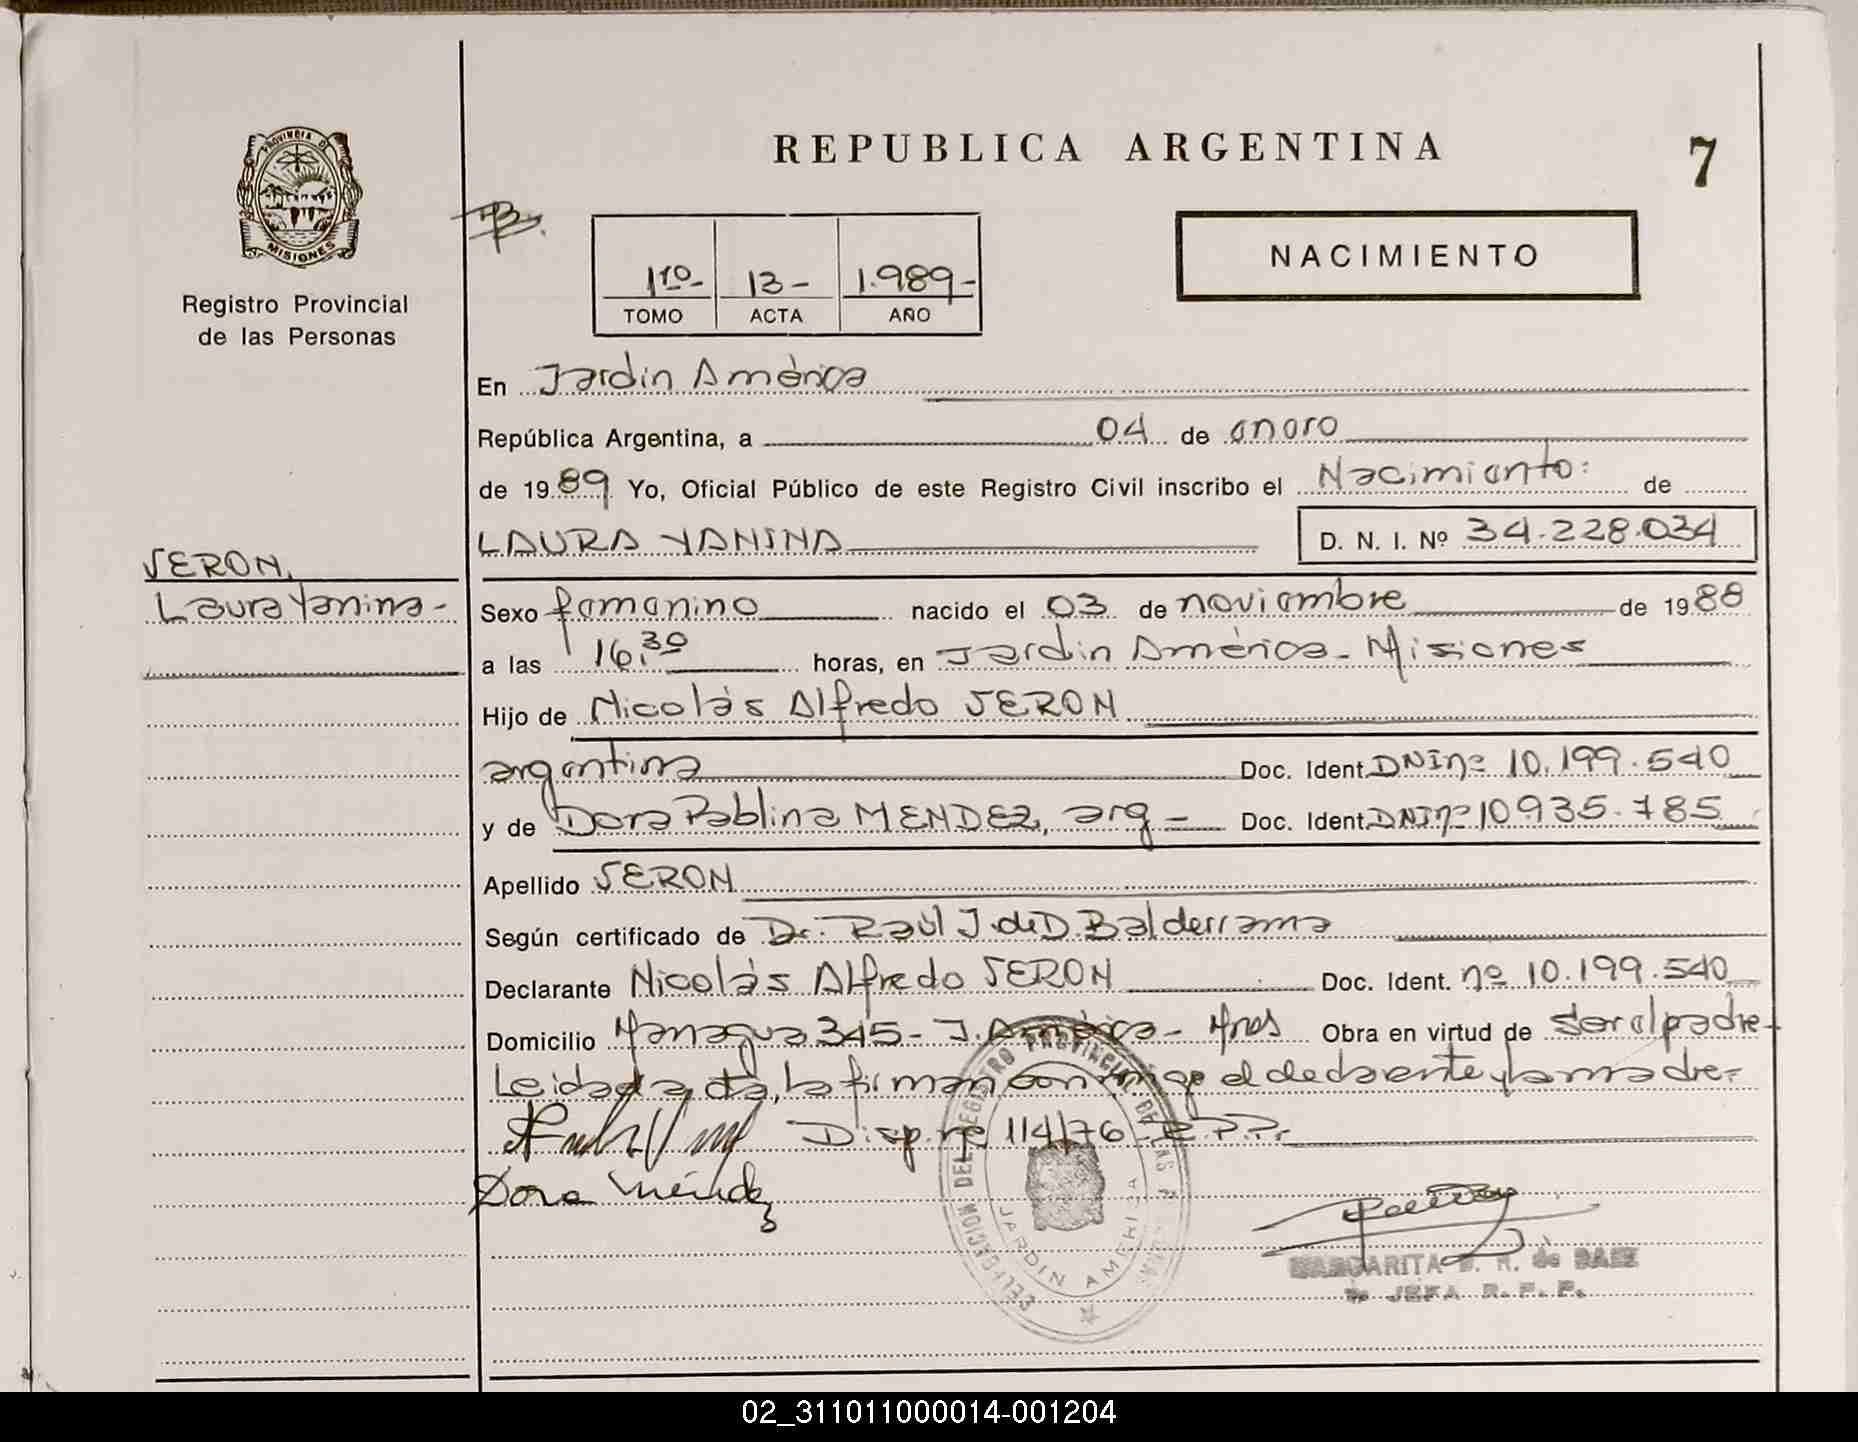 REPUBLICA ARGENTINA
7
PROVINCIA DE
MISIONES
Registro Provincial
de las Personas
1ro- 13- 1.989-
TOMO ACTA AÑO
NACIMIENTO
En Jardin América
República Argentina, a 04 de enero
de 1989 Yo, Oficial Público de este Registro Civil inscribo el Nacimiento: de
LAURA YANINA D. N. I. Nº 34.228.034
SERON,
Laura Yanina-
Sexo femenino nacido el 03 de noviembre de 1988
a las 16.30 horas, en Jardin América- Misiones
Hijo de Nicolás Alfredo SERON
argentina Doc. Ident. DNI nº 10.199.540
y de Dora Pablina MENDEZ, arg- Doc. Ident. DNI nº 10935.785
Apellido SERON
Según certificado de Dr. Raúl J. de D. Balderrama
Declarante Nicolás Alfredo SERON Doc. Ident. nº 10.199.540
Domicilio Managua 345- J. América- Mnes Obra en virtud de ser el padre-
Leida el acta, la firman conmigo el declarante y la madre-
Disp. nº 114/76 R.P.P.
Dora Méndez
DELEGACION DEL REGISTRO PROVINCIAL DE LAS PERSONAS
JARDIN AMERICA
MARGARITA R. de BAEZ
JEFA R. P. P.
02_311011000014-001204